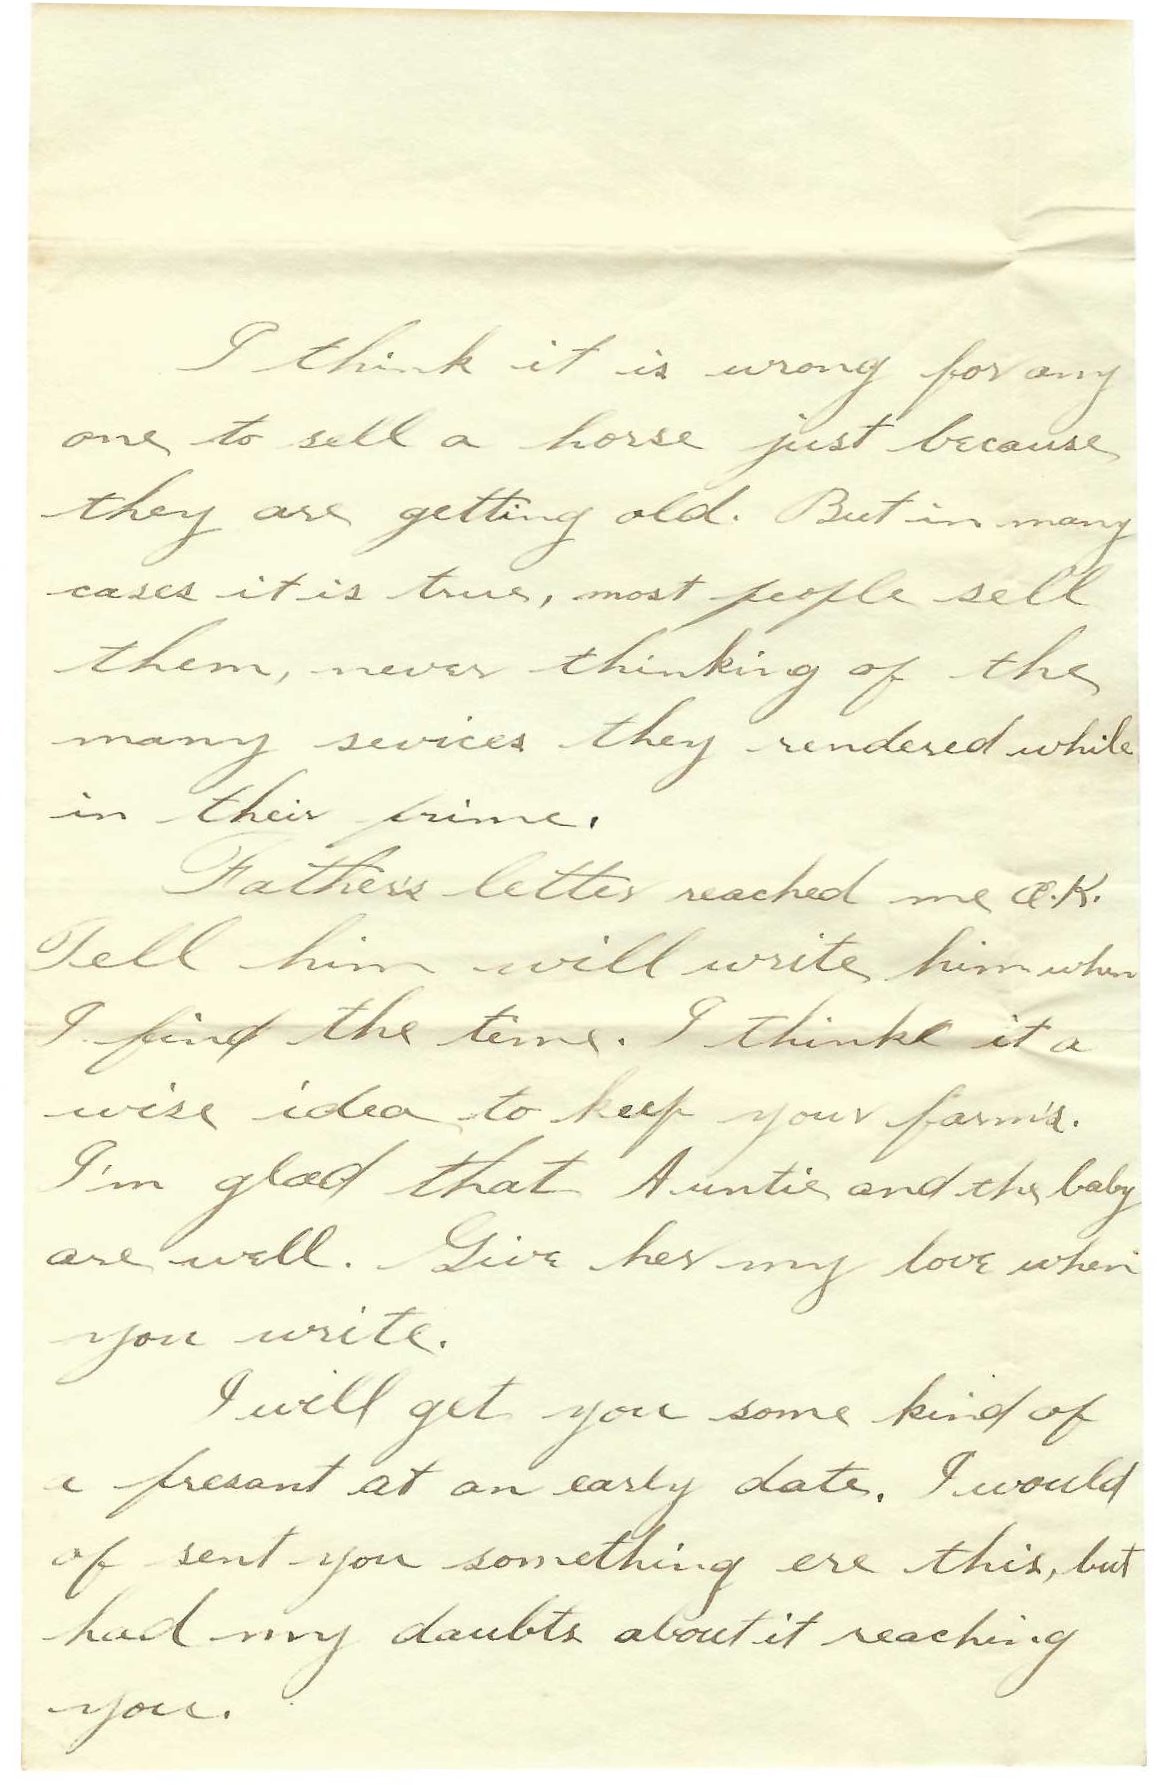 I think it is wrong for any
one to sell a horse just because
they are getting old. But in many
cases it is true, most people sell
them, never thinking of the
many sevices they rendered while
in their prime.
Father's letter reached me O.K.
Tell him will write him when
I find the time. I thinke it a
wise idea to keep your farm's.
I'm glad that Auntie and the baby
are well. Give her my love when
you write.
I will get you some kind of
a presant at an early date. I would
of sent you something ere this, but
had my doubts about it reaching
you.